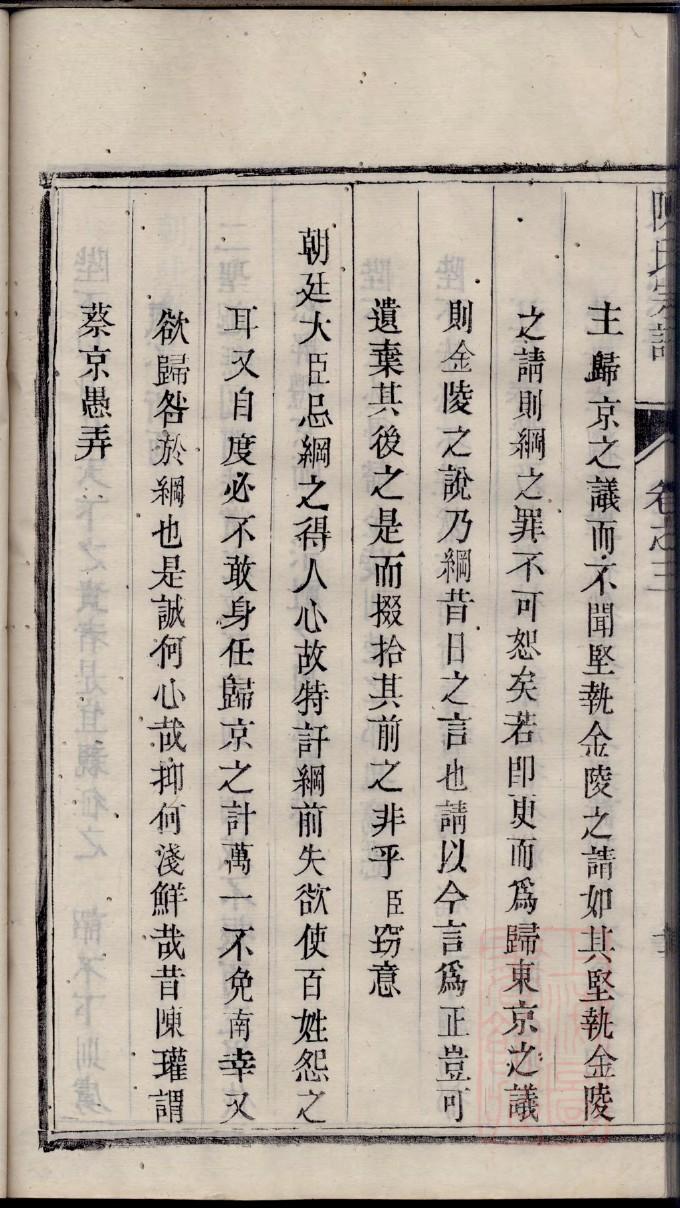 卷之三
主歸京之議而不聞堅執金陵之請如其堅執金陵
之請則綱之罪不可恕矣若即更而為歸東京之議
則金陵之說乃綱昔日之言也請以今言為正豈可
遺棄其後之是而掇拾其前之非乎臣竊意
朝廷大臣忌綱之得人心故特訐綱前失欲使百姓怨之
耳又自度必不敢身任歸京之計萬一不免南幸又
欲歸咎於綱也是誠何心哉抑何淺鮮哉昔陳瓘謂
蔡京愚弄